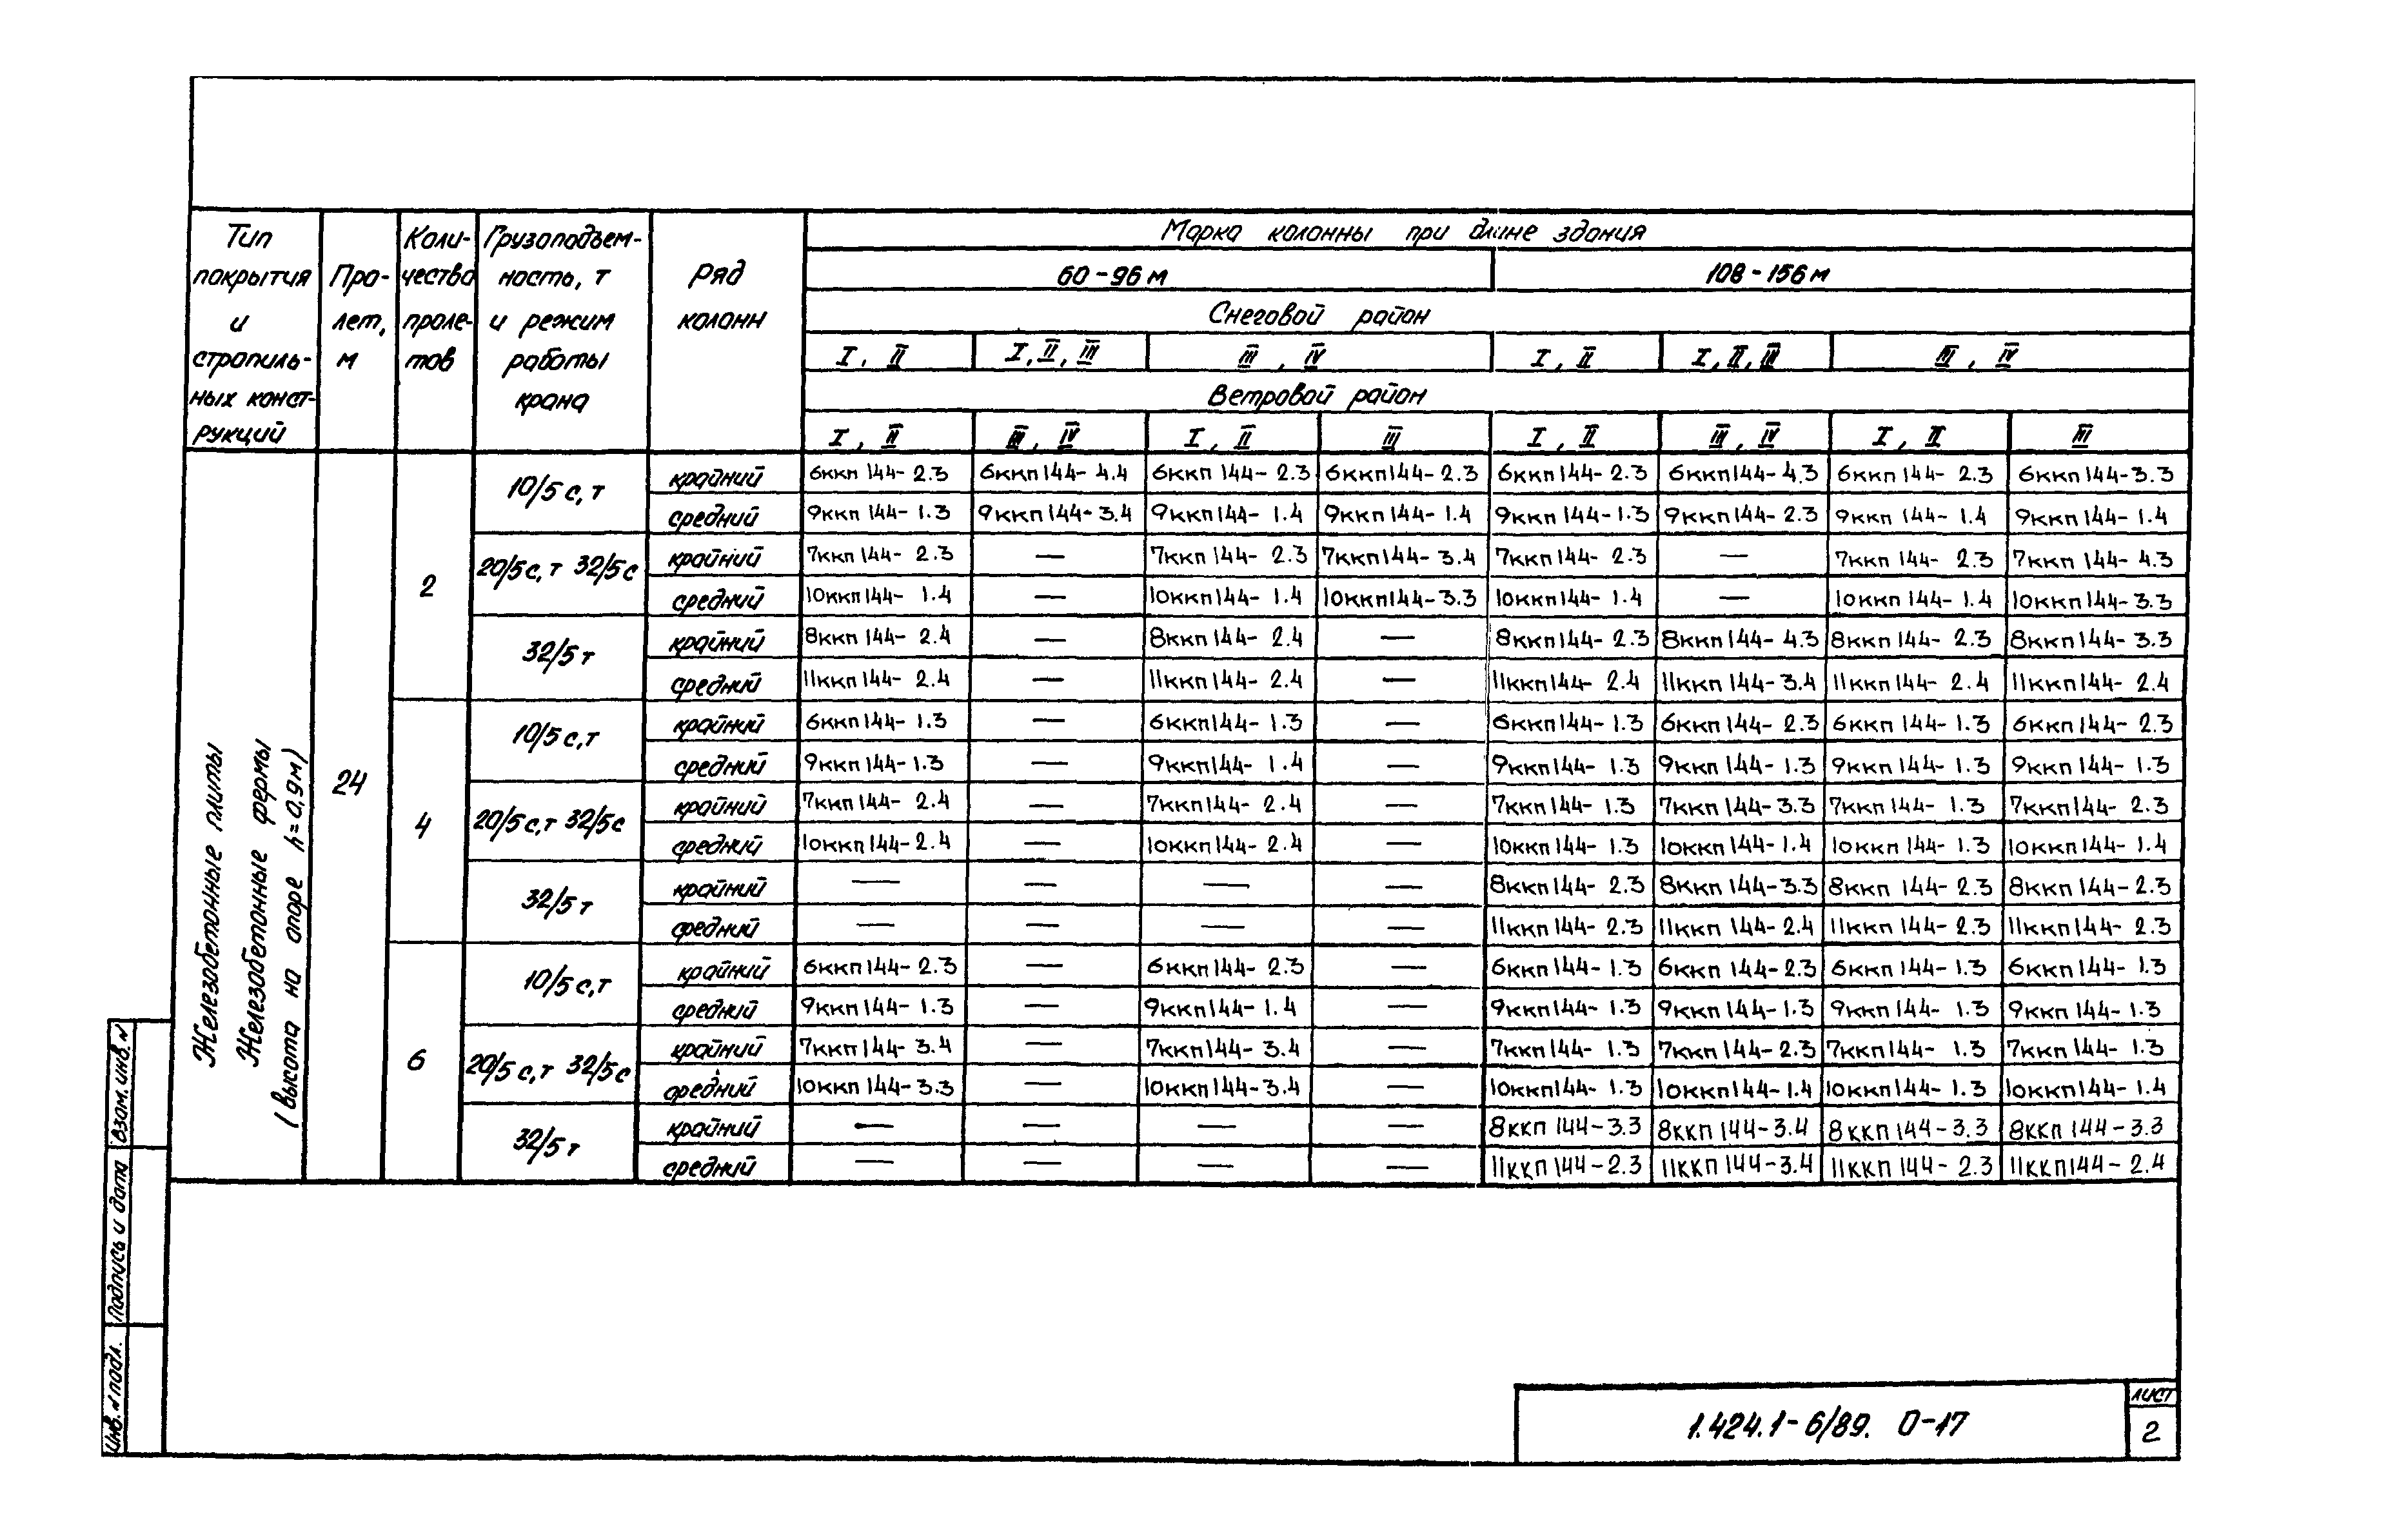 Тип покрытия и стропиль-ных конст-рукций | Про-лет, м | Коли-чество проле-тов | Грузоподъем-ность, т и режим работы крана | Ряд колонн | Марка колонны при длине здания
60-96 м | 108-156 м
Снеговой район
I, II | I, II, III | III, IV | I, II | I, II, III | III, IV
Ветровой район
I, II | III, IV | I, II | III | I, II | III, IV | I, II | III
Железобетонные плиты
Железобетонные фермы
(высота на опоре h=0,9м)
24
2
10/5 с, т
крайний | 6ккп 144-2.3 | 6ккп 144-4.4 | 6ккп 144-2.3 | 6ккп 144-2.3 | 6ккп 144-2.3 | 6ккп 144-4.3 | 6ккп 144-2.3 | 6ккп 144-3.3
средний | 9ккп 144-1.3 | 9ккп 144-3.4 | 9ккп 144-1.4 | 9ккп 144-1.4 | 9ккп 144-1.3 | 9ккп 144-2.3 | 9ккп 144-1.4 | 9ккп 144-1.4
20/5 с, т 32/5 с
крайний | 7ккп 144-2.3 | — | 7ккп 144-2.3 | 7ккп 144-3.4 | 7ккп 144-2.3 | — | 7ккп 144-2.3 | 7ккп 144-4.3
средний | 10ккп 144-1.4 | — | 10ккп 144-1.4 | 10ккп 144-3.3 | 10ккп 144-1.4 | — | 10ккп 144-1.4 | 10ккп 144-3.3
32/5 т
крайний | 8ккп 144-2.4 | — | 8ккп 144-2.4 | — | 8ккп 144-2.3 | 8ккп 144-4.3 | 8ккп 144-2.3 | 8ккп 144-3.3
средний | 11ккп 144-2.4 | — | 11ккп 144-2.4 | — | 11ккп 144-2.4 | 11ккп 144-3.4 | 11ккп 144-2.4 | 11ккп 144-2.4
4
10/5 с, т
крайний | 6ккп 144-1.3 | — | 6ккп 144-1.3 | — | 6ккп 144-1.3 | 6ккп 144-2.3 | 6ккп 144-1.3 | 6ккп 144-2.3
средний | 9ккп 144-1.3 | — | 9ккп 144-1.4 | — | 9ккп 144-1.3 | 9ккп 144-1.3 | 9ккп 144-1.3 | 9ккп 144-1.3
20/5 с, т 32/5 с
крайний | 7ккп 144-2.4 | — | 7ккп 144-2.4 | — | 7ккп 144-1.3 | 7ккп 144-3.3 | 7ккп 144-1.3 | 7ккп 144-2.3
средний | 10ккп 144-2.4 | — | 10ккп 144-2.4 | — | 10ккп 144-1.3 | 10ккп 144-1.4 | 10ккп 144-1.3 | 10ккп 144-1.4
32/5 т
крайний | — | — | — | — | 8ккп 144-2.3 | 8ккп 144-3.3 | 8ккп 144-2.3 | 8ккп 144-2.3
средний | — | — | — | — | 11ккп 144-2.3 | 11ккп 144-2.4 | 11ккп 144-2.3 | 11ккп 144-2.3
6
10/5 с, т
крайний | 6ккп 144-2.3 | — | 6ккп 144-2.3 | — | 6ккп 144-1.3 | 6ккп 144-2.3 | 6ккп 144-1.3 | 6ккп 144-1.3
средний | 9ккп 144-1.3 | — | 9ккп 144-1.4 | — | 9ккп 144-1.3 | 9ккп 144-1.3 | 9ккп 144-1.3 | 9ккп 144-1.3
20/5 с, т 32/5 с
крайний | 7ккп 144-3.4 | — | 7ккп 144-3.4 | — | 7ккп 144-1.3 | 7ккп 144-2.3 | 7ккп 144-1.3 | 7ккп 144-1.3
средний | 10ккп 144-3.3 | — | 10ккп 144-3.4 | — | 10ккп 144-1.3 | 10ккп 144-1.4 | 10ккп 144-1.3 | 10ккп 144-1.4
32/5 т
крайний | — | — | — | — | 8ккп 144-3.3 | 8ккп 144-3.4 | 8ккп 144-3.3 | 8ккп 144-3.3
средний | — | — | — | — | 11ккп 144-2.3 | 11ккп 144-3.4 | 11ккп 144-2.3 | 11ккп 144-2.4
Взам. инв. N
Подпись и дата
Инв. N подл.
1.424.1-6/89. 0-17
лист
2